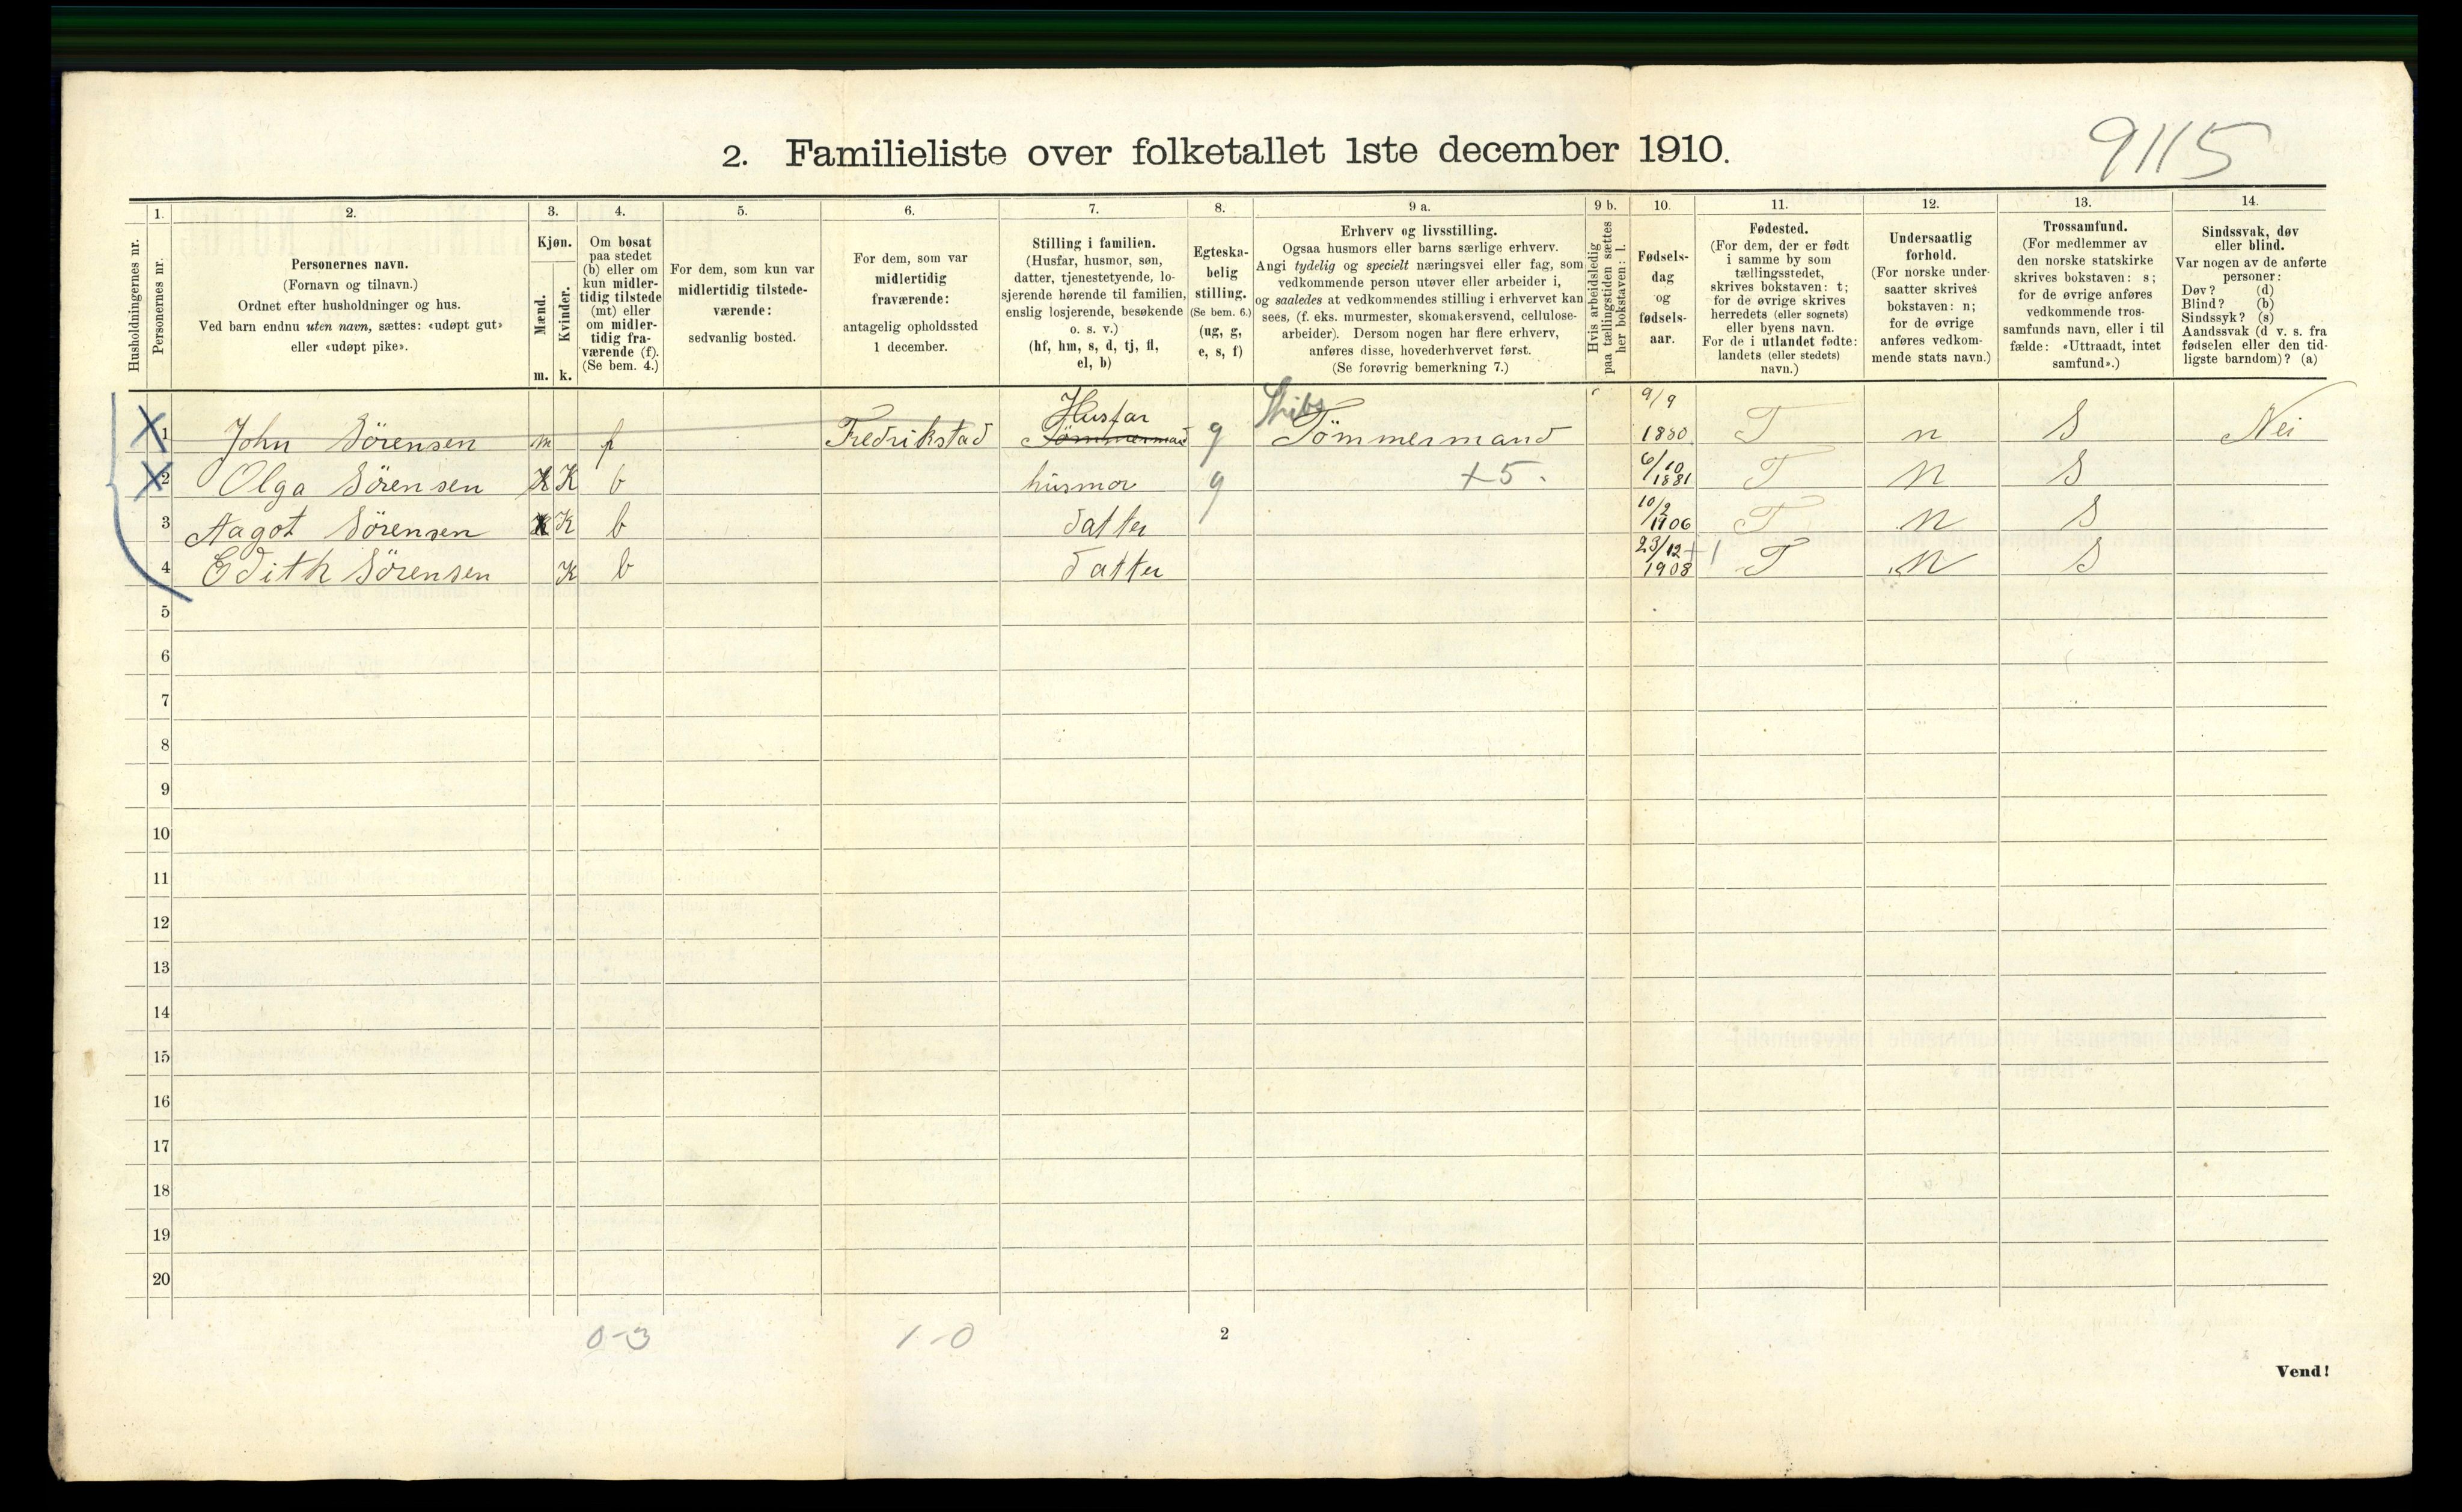 9115
2. Familieliste over folketallet 1ste december 1910.
Husholdningernes nr.
1.
Personernes nr.
2.
Personernes navn.
(Fornavn og tilnavn.)
Ordnet efter husholdninger og hus.
Ved barn endnu uten navn, sættes: «udøpt gut»
eller «udøpt pike».
3.
Kjøn.
Mænd.
Kvinder.
m. k.
4.
Om bosat
paa stedet
(b) eller om
kun midler-
tidig tilstede
(mt) eller
om midler-
tidig fra-
værende (f).
(Se bem. 4.)
5.
For dem, som kun var
midlertidig tilstede-
værende:
sedvanlig bosted.
6.
For dem, som var
midlertidig
fraværende:
antagelig opholdssted
1 december.
7.
Stilling i familien.
(Husfar, husmor, søn,
datter, tjenestetyende, lo-
sjerende hørende til familien,
enslig losjerende, besøkende
o. s. v.)
(hf, hm, s, d, tj, fl,
el, b)
8.
Egteska-
belig
stilling.
(Se bem. 6.)
(ug, g,
e, s, f)
9 a.
Erhverv og livsstilling.
Ogsaa husmors eller barns særlige erhverv.
Angi tydelig og specielt næringsvei eller fag, som
vedkommende person utøver eller arbeider i,
og saaledes at vedkommendes stilling i erhvervet kan
sees, (f. eks. murmester, skomakersvend, cellulose-
arbeider). Dersom nogen har flere erhverv,
anføres disse, hovederhvervet først.
(Se forøvrig bemerkning 7.)
9 b.
Hvis arbeidsledig
paa tællingstiden sættes
her bokstaven: l.
10.
Fødsels-
dag
og
fødsels-
aar.
11.
Fødested.
(For dem, der er født
i samme by som
tællingsstedet,
skrives bokstaven: t;
for de øvrige skrives
herredets (eller sognets)
eller byens navn.
For de i utlandet fødte:
landets (eller stedets)
navn.)
12.
Undersaatlig
forhold.
(For norske under-
saatter skrives
bokstaven: n;
for de øvrige
anføres vedkom-
mende stats navn.)
13.
Trossamfund.
(For medlemmer av
den norske statskirke
skrives bokstaven: s;
for de øvrige anføres
vedkommende tros-
samfunds navn, eller i til
fælde: «Uttraadt, intet
samfund».)
14.
Sindssvak, døv
eller blind.
Var nogen av de anførte
personer:
Døv? (d)
Blind? (b)
Sindssyk? (s)
Aandssvak (d v. s. fra
fødselen eller den tid-
ligste barndom)? (a)
Husfar Skibs 9/9
1 John Sörensen m f Fredrikstad Tömmermand g Tömmermand 1880 T n S Nei
2 Olga Sörensen K b husmor g +5. 6/10 1881 T N S
3 Aagot Sörensen K b datter 10/2 1906 T N S
4 Edith Sörensen K b datter 23/12 1908 +1 T N S
5
6
7
8
9
10
11
12
13
14
15
16
17
18
19
20
0-3 1-0
2
Vend!